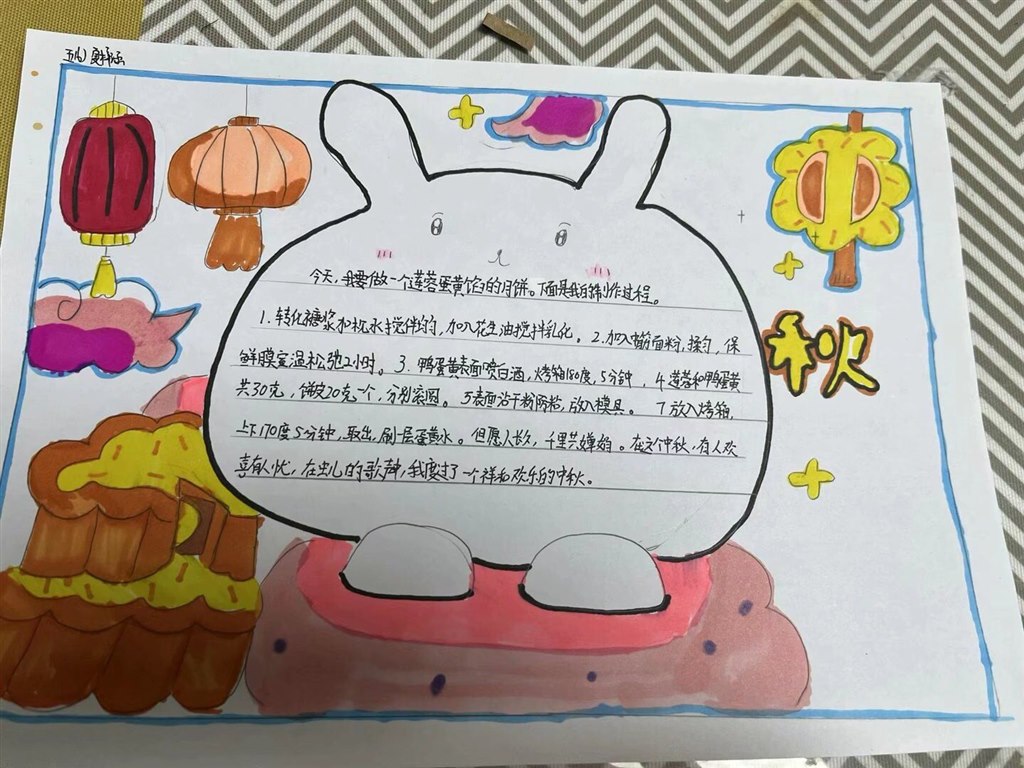 五(6)
中
秋
今天,我要做一个莲蓉蛋黄馅的月饼。下面是我的制作过程。
1.转化糖浆和枧水搅伴均,加入花生油搅拌乳化。2.加入面粉,揉匀,保
鲜膜室温松弛2小时。3.鸭蛋黄表面喷白酒,烤箱180度,5分钟,4.莲蓉和鸭蛋黄
共30克,饼皮20克一个,分别滚圆。5表面沾干粉防粘,放入模具。7放入烤箱,
上下170度5分钟,取出,刷一层蛋黄水。但愿人长久,千里共婵娟。在这个中秋,有人欢
喜有人忧,在虫儿的歌声,我要过了一个祥和欢乐的中秋。